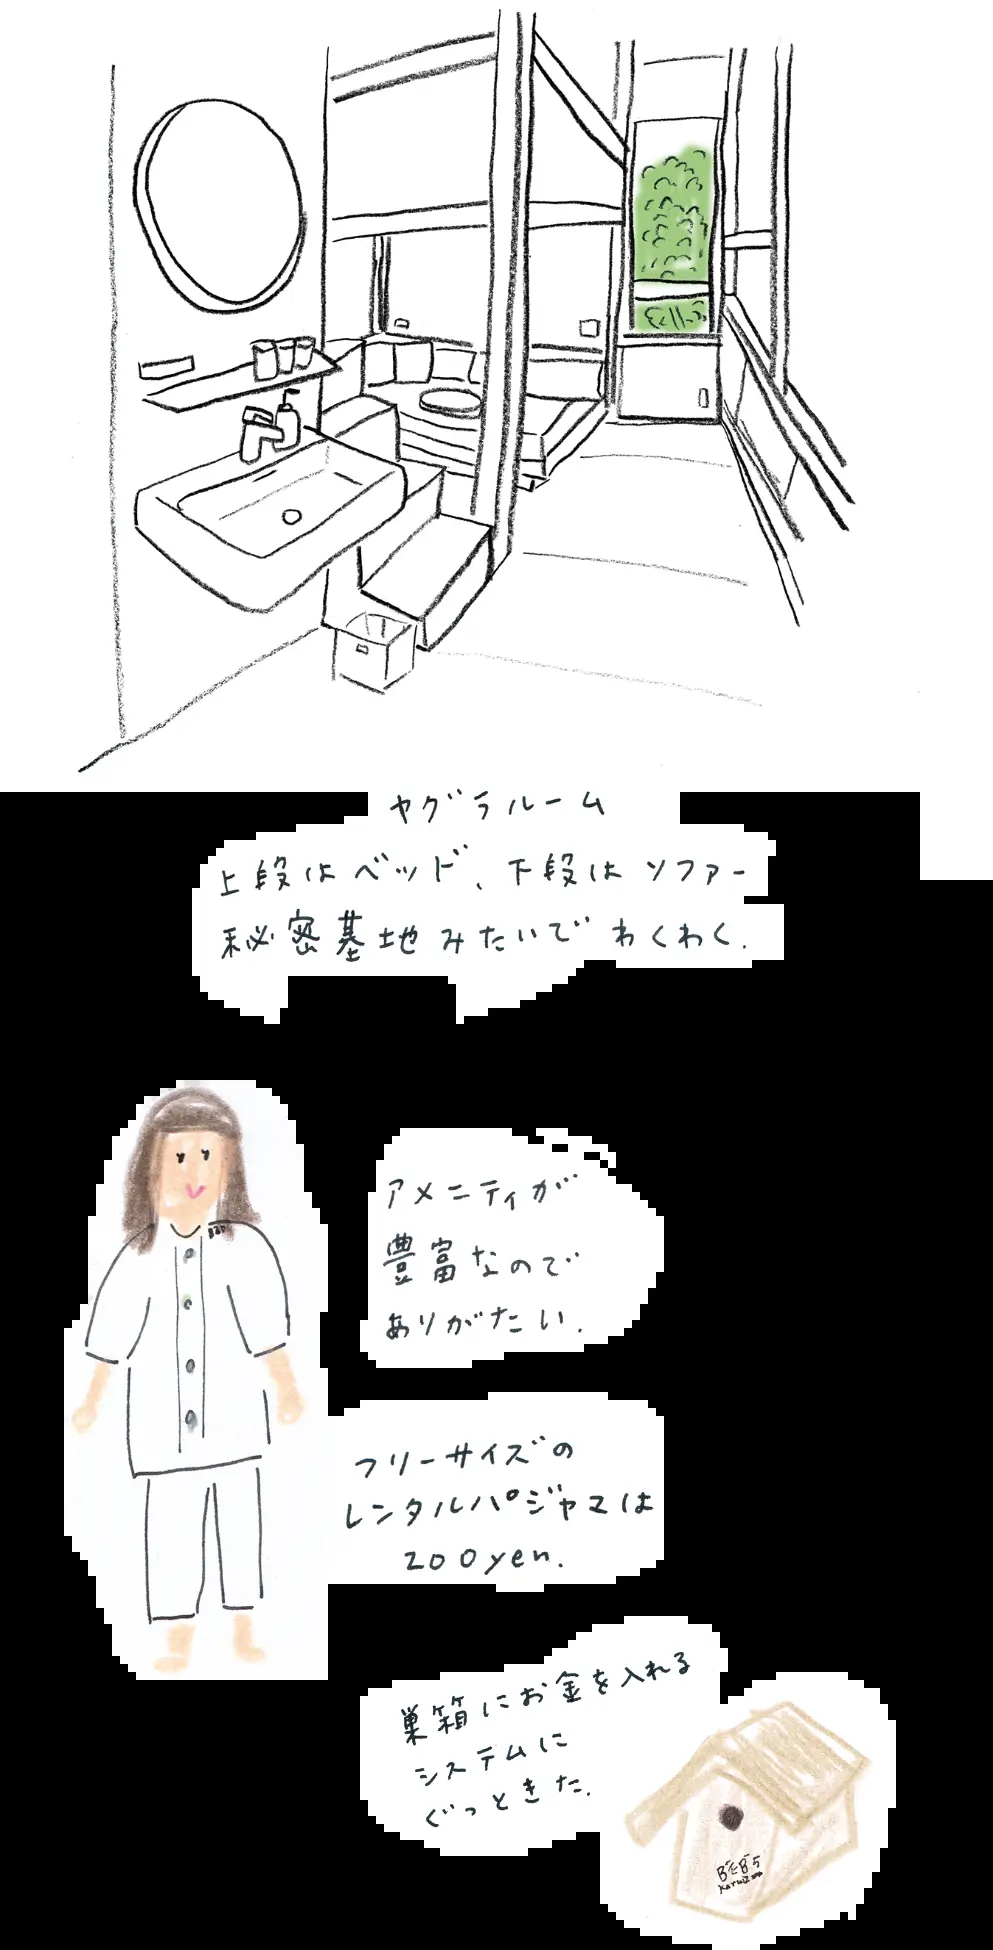 ヤグラルーム
上段はベッド、下段はソファー
秘密基地みたいでわくわく.
アメニティが
豊富なので
ありがたい.
フリーサイズの
レンタルパジャマは
200yen.
巣箱にお金を入れる
システムに
ぐっときた.
BEB5